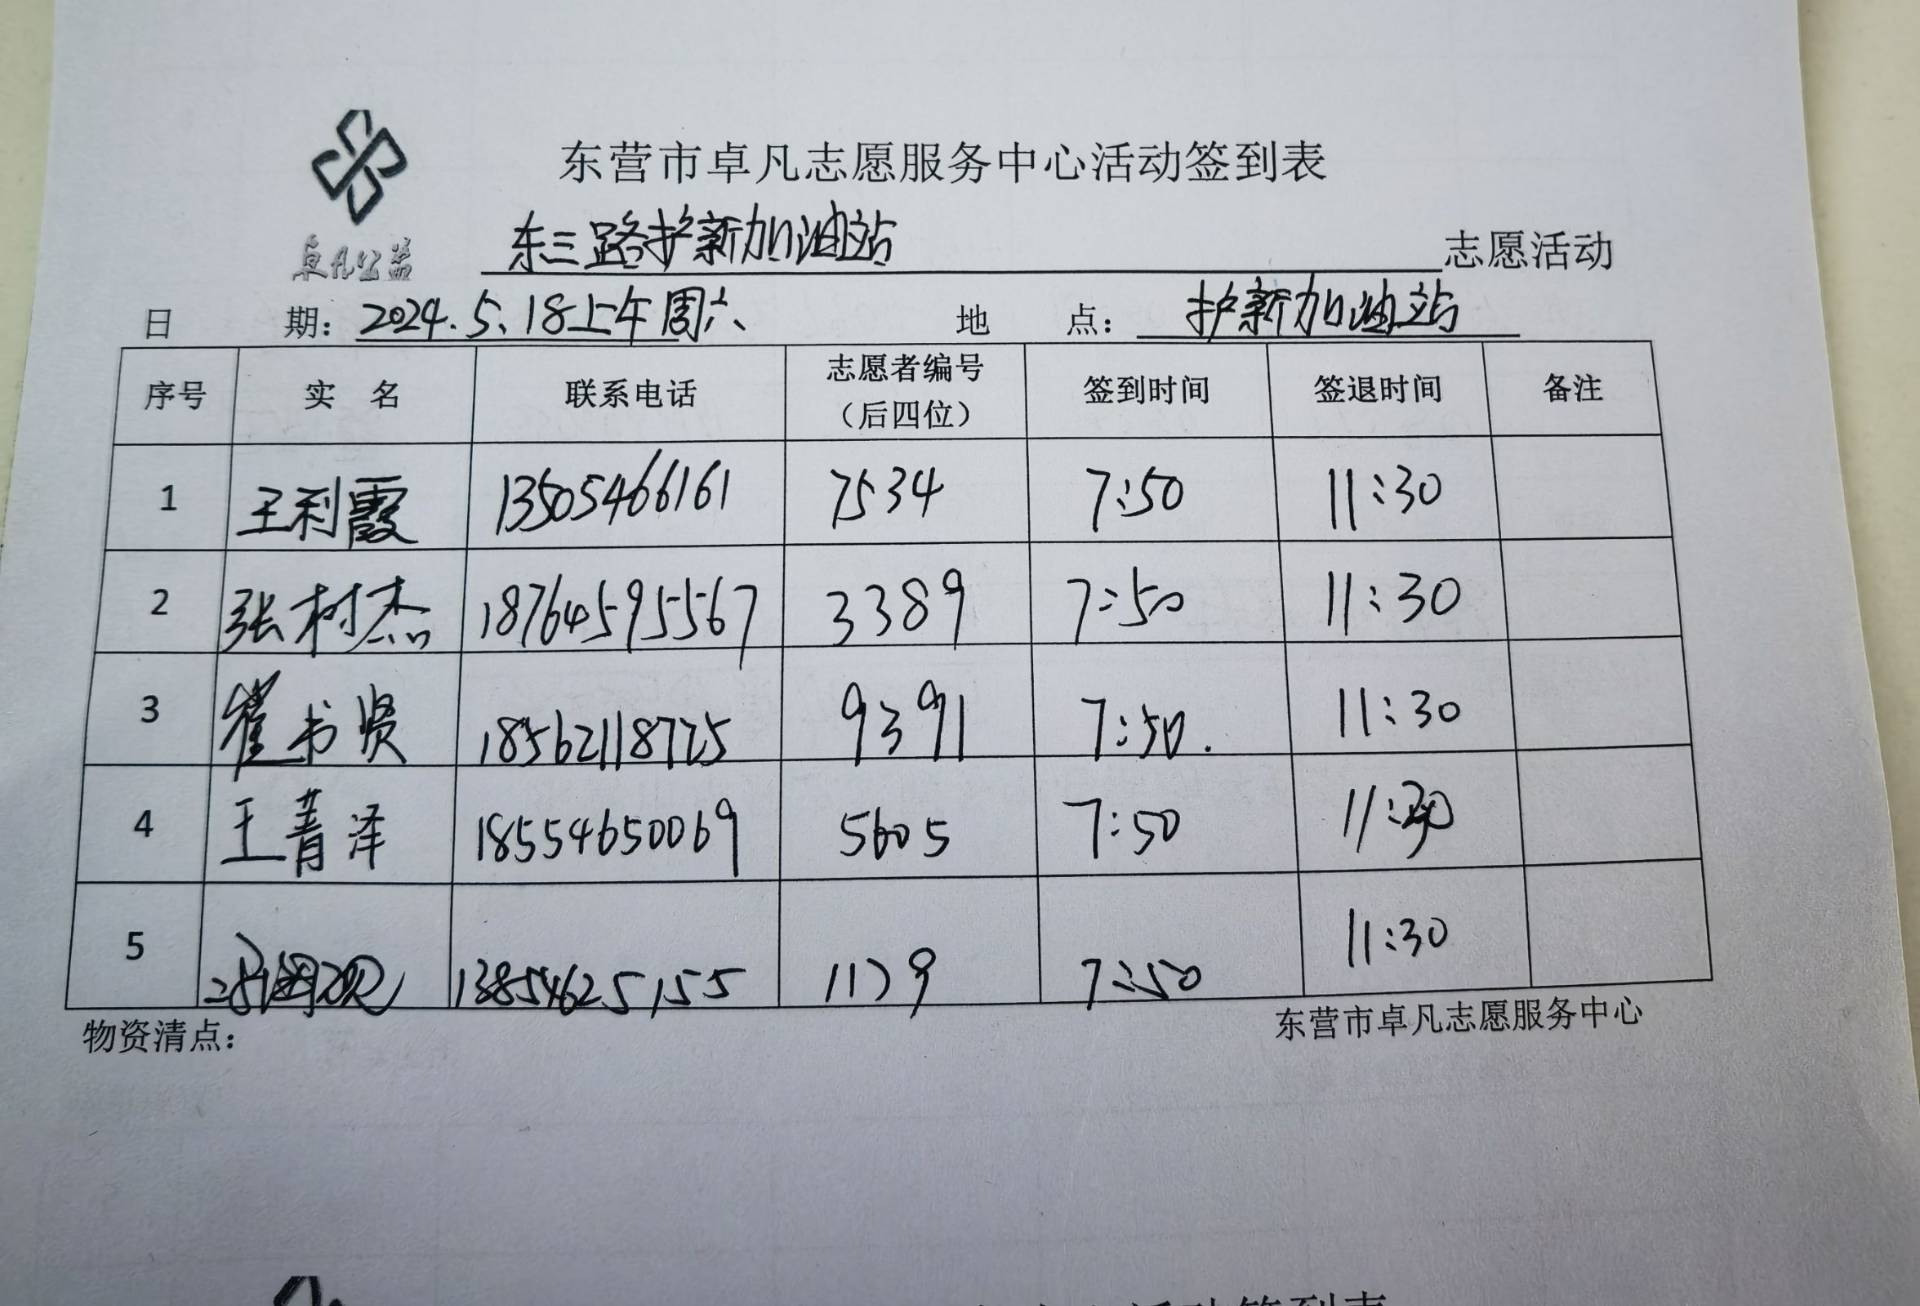 东营市卓凡志愿服务中心活动签到表
卓凡公益
东三路护新加油站 志愿活动
日 期：2024.5.18上午周六 地 点：护新加油站
序号 实 名 联系电话 志愿者编号（后四位） 签到时间 签退时间 备注
1 王利霞 13505466161 7534 7:50 11:30
2 张树杰 18764595567 3389 7:50 11:30
3 崔书贤 18562118725 9391 7:50. 11:30
4 王菁泽 18554650069 5605 7:50 11:30
5 13854625155 1179 7:50 11:30
物资清点： 东营市卓凡志愿服务中心